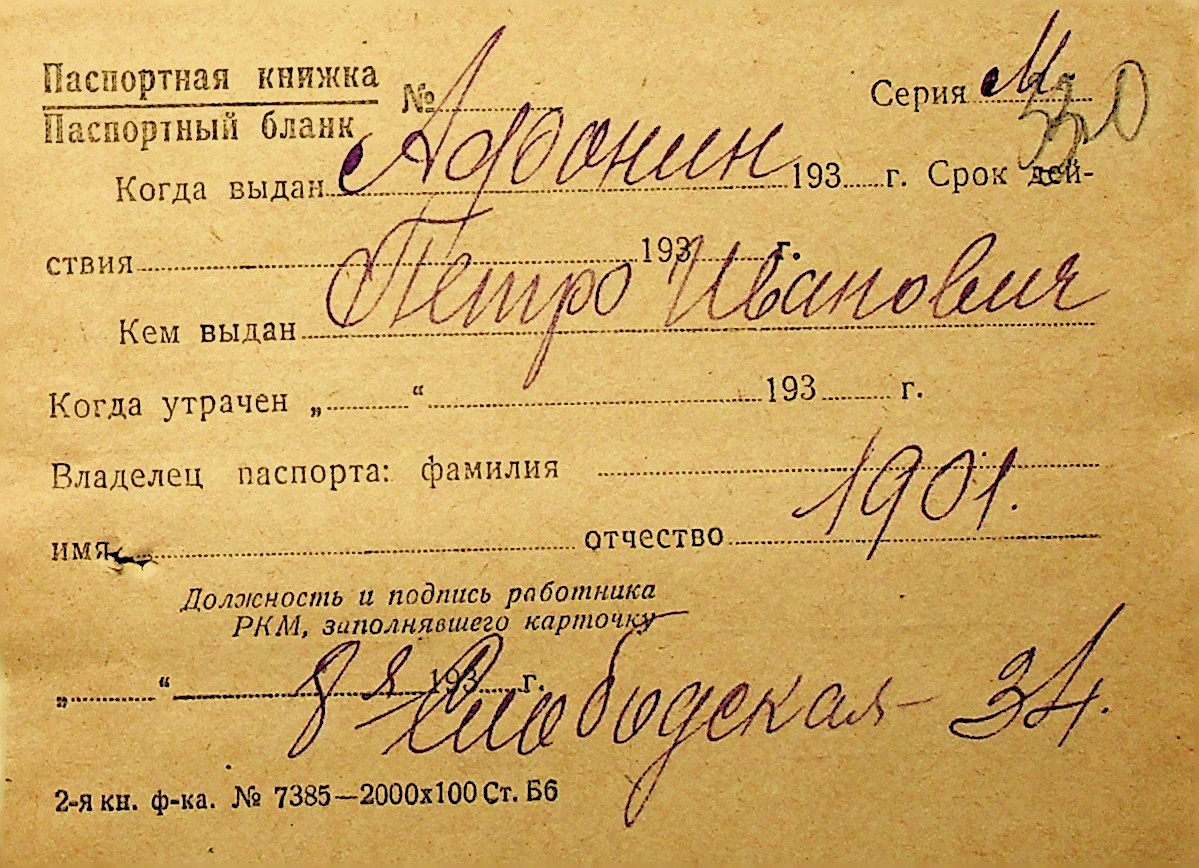 Паспортная книжка
Паспортный бланк № Серия М
330
Когда выдан 193 г. Срок дей-
Афонин
ствия 193 г.
Петро Иванович
Кем выдан
Когда утрачен „ “ 193 г.
Владелец паспорта: фамилия
1901.
имя отчество
Должность и подпись работника
РКМ, заполнявшего карточку
„ “ 193 г.
8я Слободская 34.
2-я кн. ф-ка. № 7385—2000х100 Ст. Б6